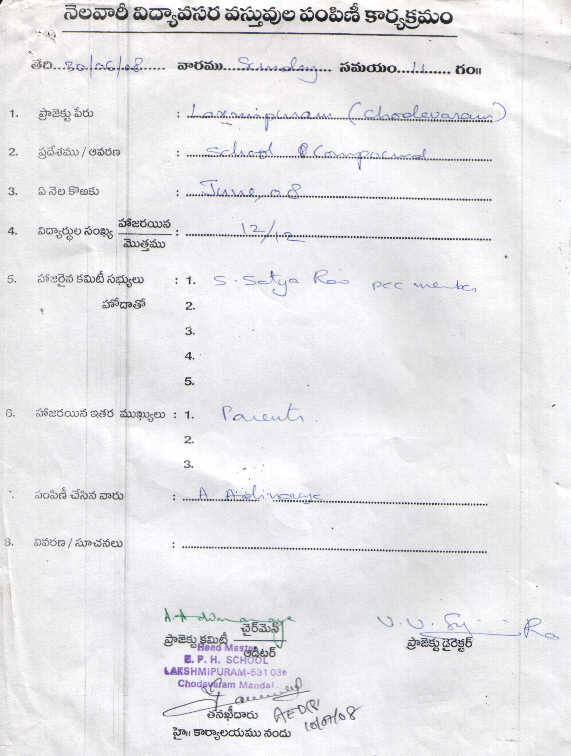 నెలవారీ విద్యావసర వస్తువుల పంపిణీ కార్యక్రమం
తేది...30/06/08...... వారము....Sunday.... సమయం...11...... గం॥
1. ప్రాజెక్టు పేరు : Laxmipuram (Chodavaram)
2. ప్రదేశము / ఆవరణ : School Compound
3. ఏ నెల కొఱకు : June, 08
4. విద్యార్థుల సంఖ్య హాజరయిన / మొత్తము : 12/12
5. హాజరైన కమిటీ సభ్యులు : 1. S. Satya Rao pcc member
హోదాతో 2.
3.
4.
5.
6. హాజరయిన ఇతర ముఖ్యులు : 1. Parents
2.
3.
. పంపిణీ చేసిన వారు : A Adinaraya
8. వివరణ / సూచనలు :
A. Adinaraya
ప్రాజెక్టు కమిటీ చైర్‌మెన్ / ఆడిటర్ ప్రాజెక్టు డైరెక్టర్
Head Master
E. P. H. SCHOOL
LAKSHMIPURAM-531 036
Chodavaram Mandal
తనఖీదారు
10/07/08
హై॥ కార్యాలయము నందు